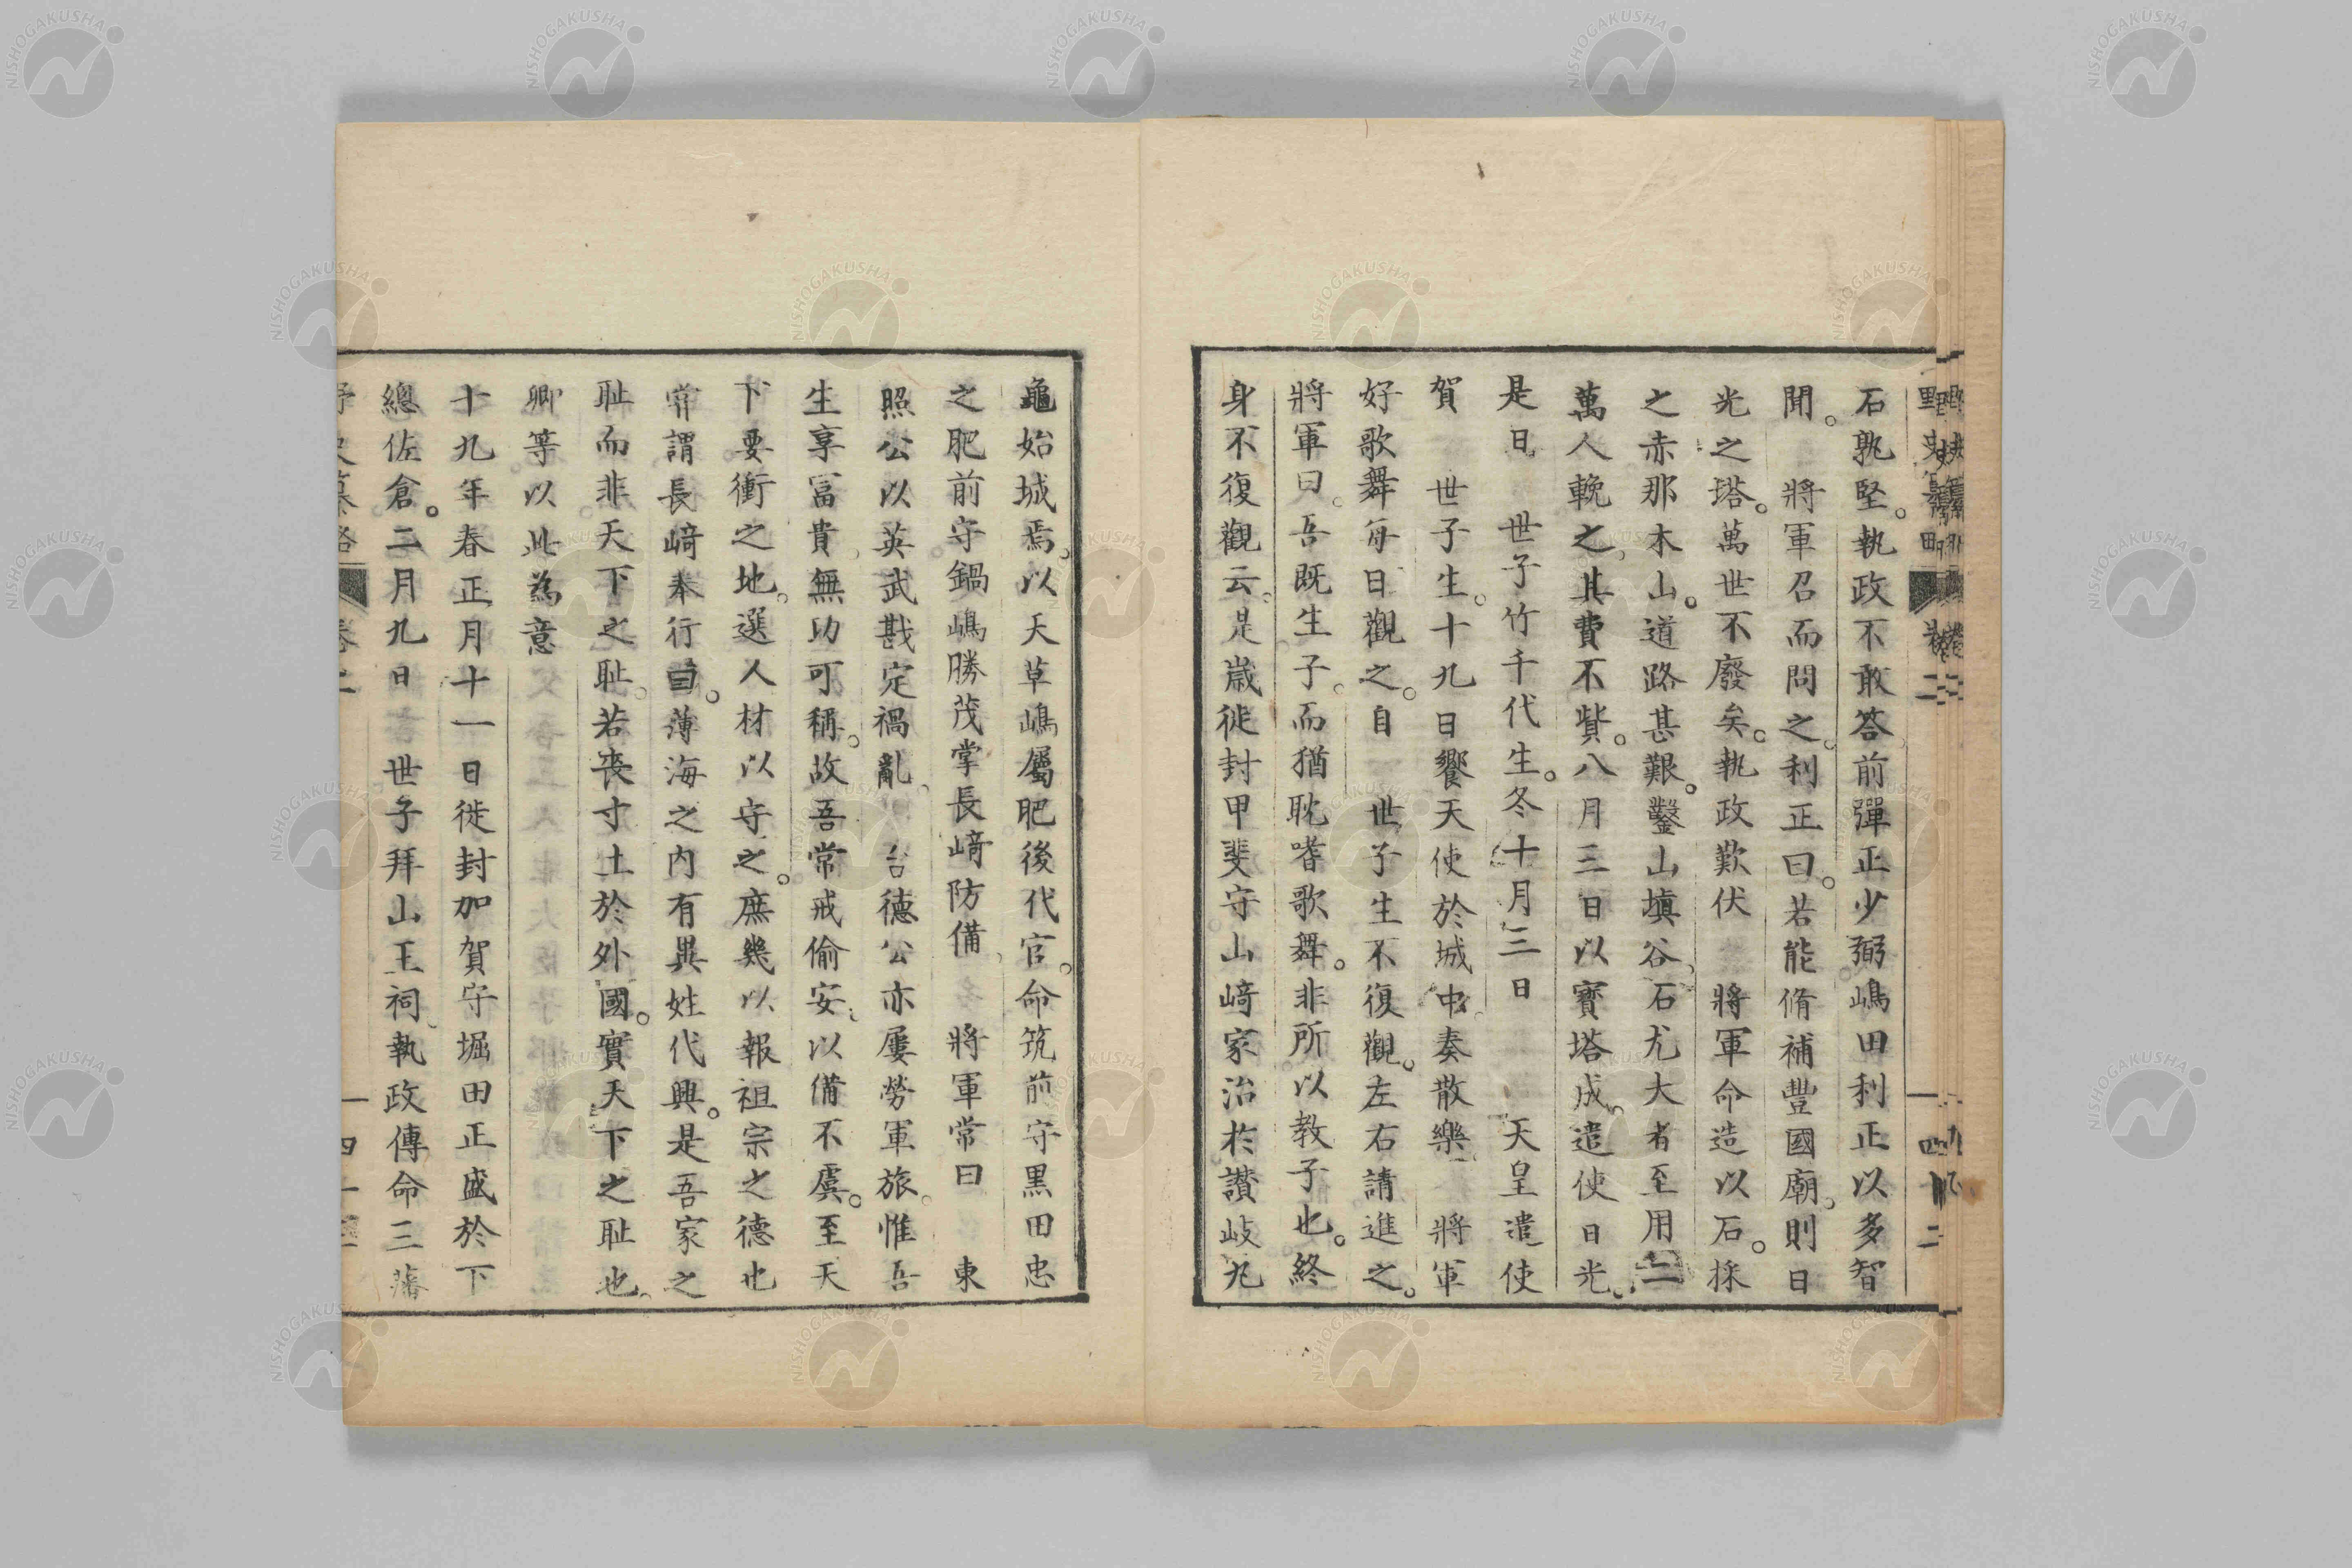 石孰堅。執政不敢答前彈正少弼嶋田利正以多智
聞。　將軍召而問之。利正曰。若能脩補豐國廟。則日
光之塔。萬世不廢矣。執政歎伏　將軍命造以石。採
之赤那木山。道路甚艱。鑿山塡谷。石尤大者至用二
萬人輓之。其費不貲。八月三日以寶塔成。遣使日光。
是日　世子竹千代生。冬十月三日　天皇遣使
賀　世子生。十九日饗天使於城中。奏散樂　將軍
好歌舞每日觀之。自　世子生不復觀。左右請進之。
將軍曰。吾既生子。而猶耽嗜歌舞。非所以教子也。終
身不復觀云。是歲徙封甲斐守山﨑家治於讚岐丸
龜始城焉。以天草嶋屬肥後代官。命筑前守黒田忠
之肥前守鍋嶋勝茂掌長﨑防備。　將軍常曰　東
照公以英武戡定禍亂。　台德公亦屢勞軍旅。惟吾
生享冨貴。無功可稱。故吾常戒偷安。以備不虞。至天
下要衝之地。選人材以守之。庶幾以報祖宗之德也
甞謂長﨑奉行曰。薄海之内有異姓代興。是吾家之
耻而非天下之耻。若喪寸土於外國。實天下之耻也。
卿等以此為意
十九年春正月十一日徙封加賀守堀田正盛於下
總佐倉。二月九日　世子拜山王祠。執政傳命三藩